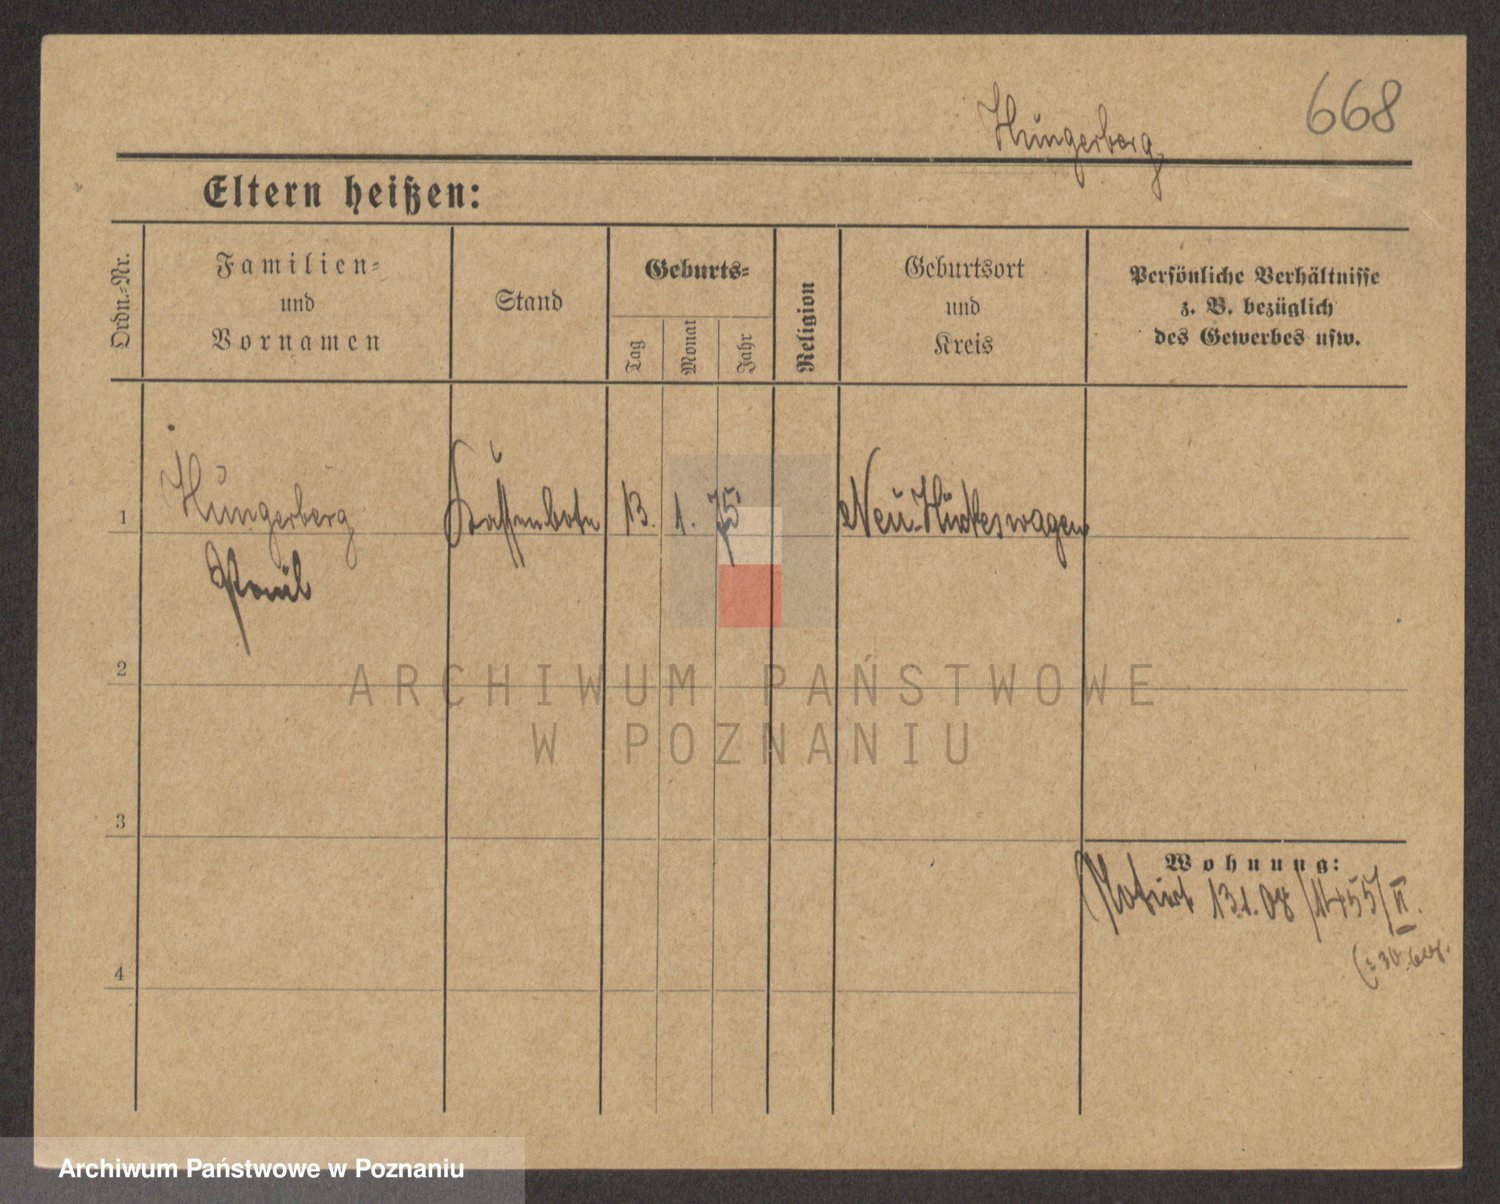 668
Hungerberg
Eltern heißen:
Ordn.-Nr.
Familien-
und
Vornamen
Stand
Geburts-
Tag
Monat
Jahr
Religion
Geburtsort
und
Kreis
Persönliche Verhältnisse
z. B. bezüglich
des Gewerbes usw.
1
Hungerberg
Paul
Kassenbote
13.
1.
75
Neu-Hückeswagen
2
ARCHIWUM PAŃSTWOWE
W POZNANIU
3
Wohnung:
Notiert 13.1.08 /1455/II.
4
Archiwum Państwowe w Poznaniu